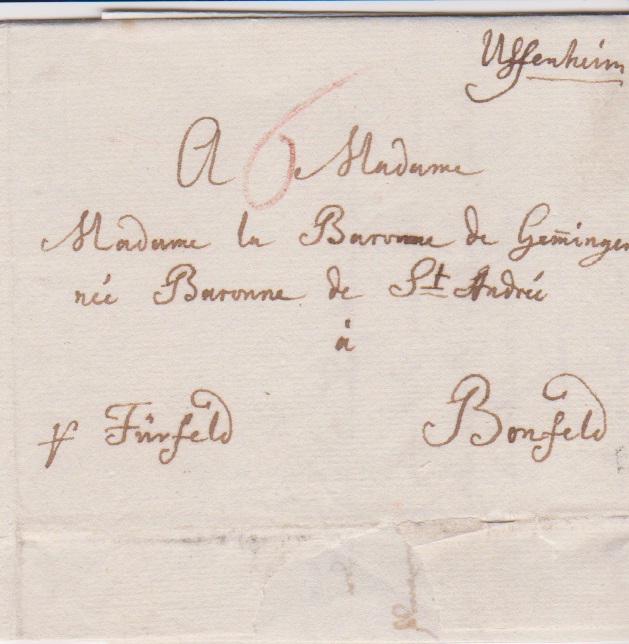 Uffenheim
A 6 Madame
Madame la Baronne de Gem̄ingen
née Baronne de St. Andrée
à
Fürfeld Bonfeld